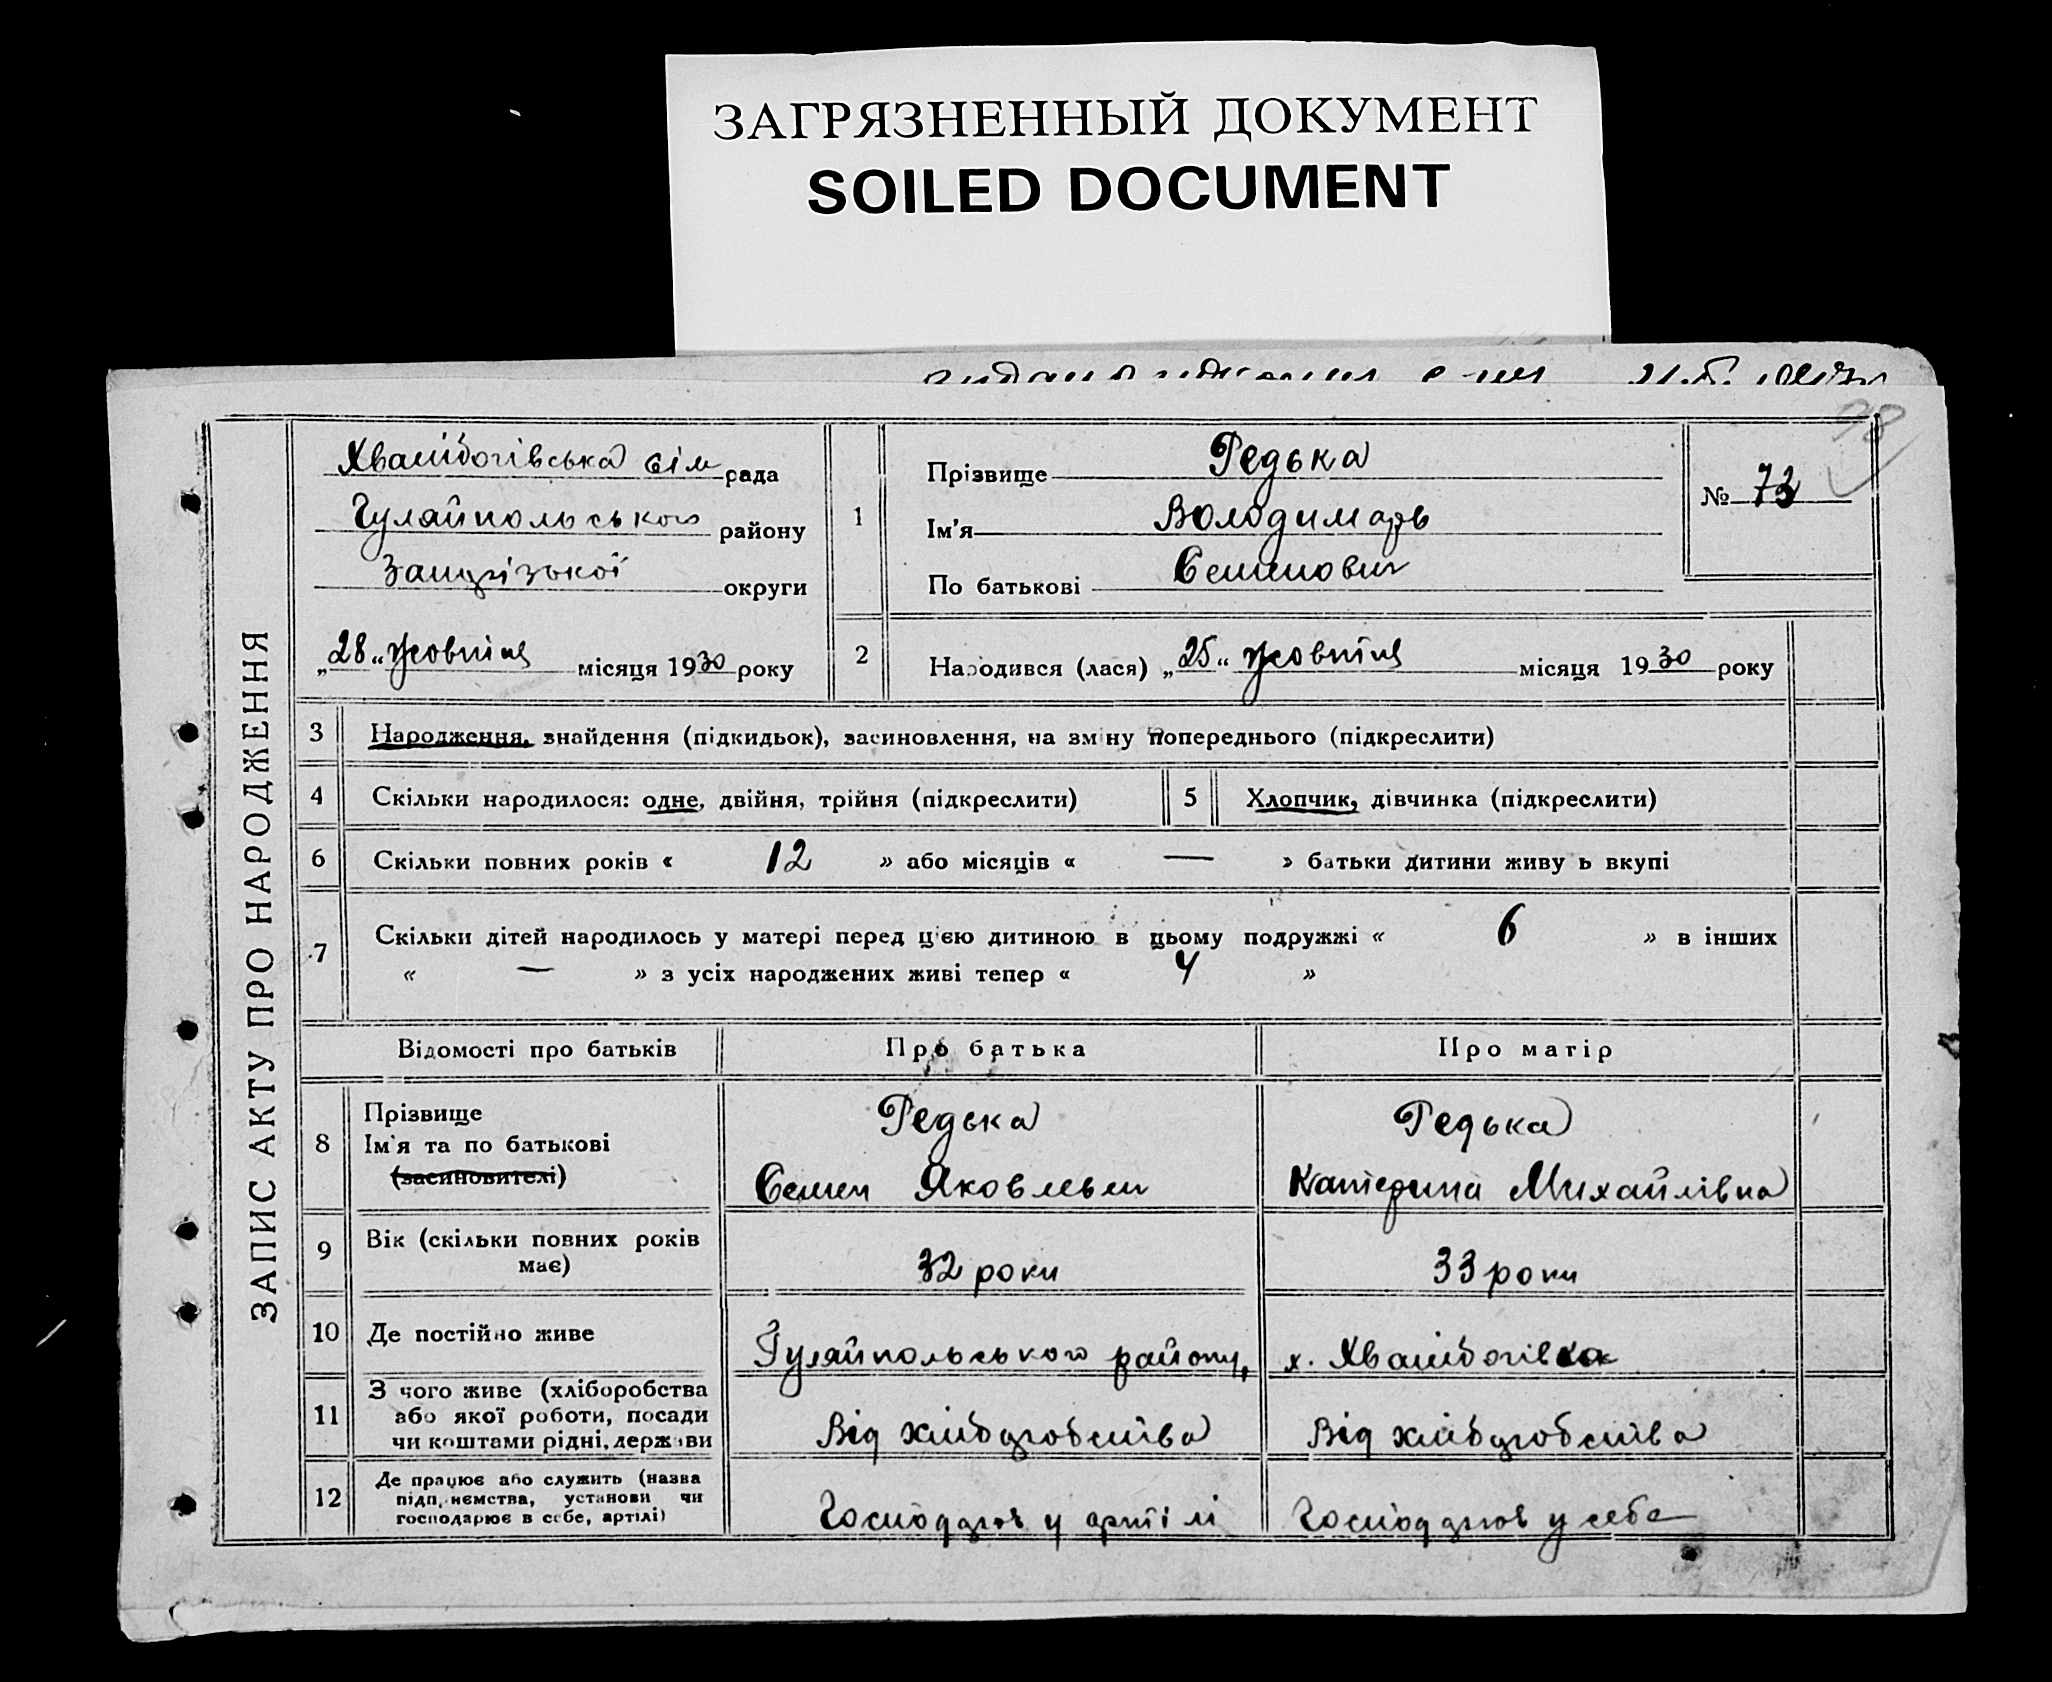 ЗАГРЯЗНЕННЫЙ ДОКУМЕНТ
SOILED DOCUMENT
98
ЗАПИС АКТУ ПРО НАРОДЖЕННЯ
Хвалібогівська сіл рада
Гуляйпольського району
Запорізької округи
„28“ жовтня місяця 1930 року
1
Прізвище Редька
Ім'я Володимарь
По батькові Семенович
№ 73
2
Народився (лася) „25“ жовтня місяця 1930 року
3 Народження, знайдення (підкидьок), засиновлення, на зміну попереднього (підкреслити)
4 Скільки народилося: одне, двійня, трійня (підкреслити)
5 Хлопчик, дівчинка (підкреслити)
6 Скільки повних років « 12 » або місяців « — » батьки дитини живу ь вкупі
7 Скільки дітей народилось у матері перед цією дитиною в цьому подружжі « 6 » в інших
« — » з усіх народжених живі тепер « 4 »
Відомості про батьків Про батька Про матір
8 Прізвище
Ім'я та по батькові
(засиновителі)
Редька
Семен Яковлевич
Редька
Катерина Михайлівна
9 Вік (скільки повних років
має)
32 роки
33 роки
10 Де постійно живе
Гуляйпольського району,
х. Хвалібогівка
11 З чого живе (хліборобства
або якої роботи, посади
чи коштами рідні, держави
Від хліборобства
Від хліборобства
12 Де працює або служить (назва
підприємства, установи чи
господарює в себе, артілі)
Господарюв у артілі
Господарюв у себе